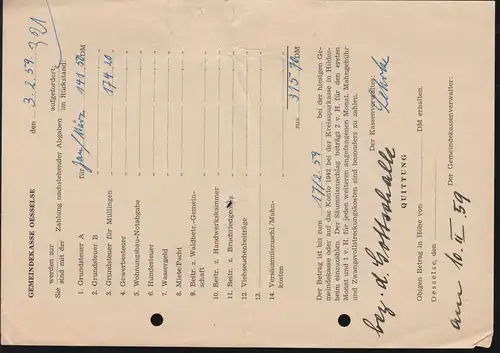 GEMEINDEKASSE OESSELSE
den 3. 2. 59
Sie werden zur Zahlung nachstehender Abgaben aufgefordert:
sind mit der im Rückstand:
1. Grundsteuer A für Jan/März 141 50 DM
2. Grundsteuer B
3. Grundsteuer für Müllingen 174 20
4. Gewerbesteuer
5. Wohnungsbau-Notabgabe
6. Hundesteuer
7. Wassergeld
8. Miete/Pacht
9. Beitr. z. Waldbetr.-Gemein-
schaft
10. Beitr. z. Handwerkskammer
11. Beitr. z. Bruchriedgen.
12. Viehseuchenbeiträge
13.
14. Versäumniszuschl./Mahn-
kosten
zus. 315 70 DM
Der Betrag ist bis zum 17/2. 59 bei der hiesigen Ge-
meindekasse oder auf das Konto 1942 bei der Kreissparkasse in Hildes-
heim einzuzahlen. Der Säumniszuschlag beträgt 2 v. H. für den ersten
Monat und 1 v. H. für jeden weiteren angefangenen Monat. Mahngebühr
und Zwangsvollstreckungskosten sind besonders zu zahlen.
Der Kassenverwalter:
bez. d. Gottschalk
QUITTUNG
Obigen Betrag in Höhe von DM erhalten.
Oesselse, den
Der Gemeindekassenverwalter:
am 10. II 59